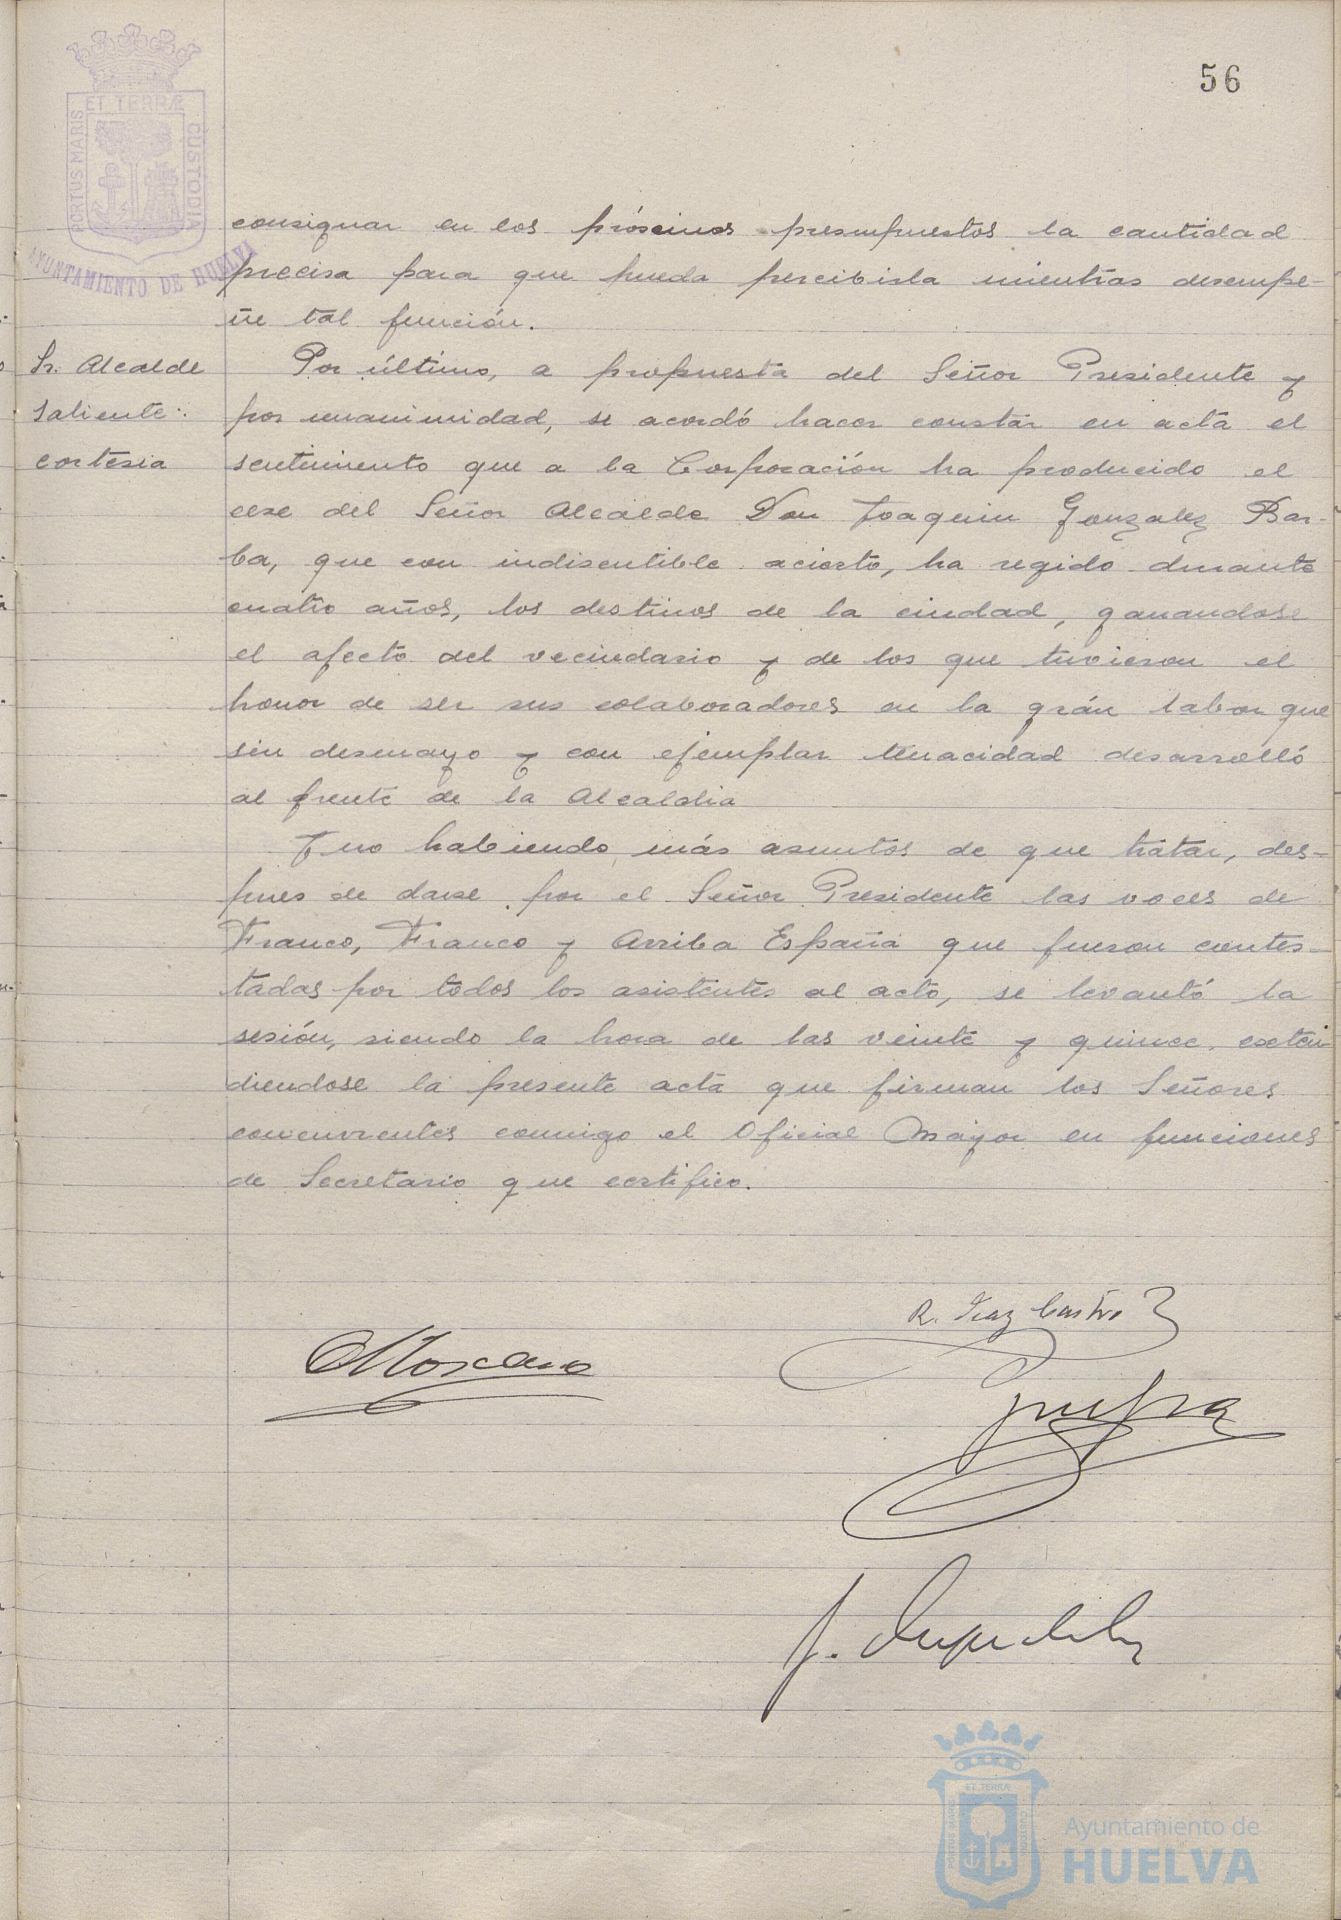 56
PORTUS MARIS ET TERRÆ CUSTODIA
AYUNTAMIENTO DE HUELVA
consignar en los próximos presupuestos la cantidad
precisa para que pueda percibirla mientras desempe-
ñe tal función.
Sr. Alcalde
saliente:
cortesia
Por último, a propuesta del Señor Presidente y
por unanimidad, se acordó hacer constar en acta el
sentimiento que a la Corporación ha producido el
cese del Señor Alcalde Don Joaquin Gonzalez Bar-
ba, que con indiscutible acierto, ha regido durante
cuatro años, los destinos de la ciudad, ganandose
el afecto del vecindario y de los que tuvieron el
honor de ser sus colaboradores en la grán labor que
sin desmayo y con ejemplar tenacidad desarrolló
al frente de la Alcaldia
Y no habiendo más asuntos de que tratar, des-
pues de darse por el Señor Presidente las voces de
Franco, Franco y Arriba España que fueron contes-
tadas por todos los asistentes al acto, se levantó la
sesión, siendo la hora de las veinte y quince, exten
diendose la presente acta que firman los Señores
concurrentes conmigo el Oficial Mayor en funciones
de Secretario que certifico.
R. Diaz Castro
Moscoso
J.
PORTUS MARIS ET TERRÆ CUSTODIA
Ayuntamiento de
HUELVA